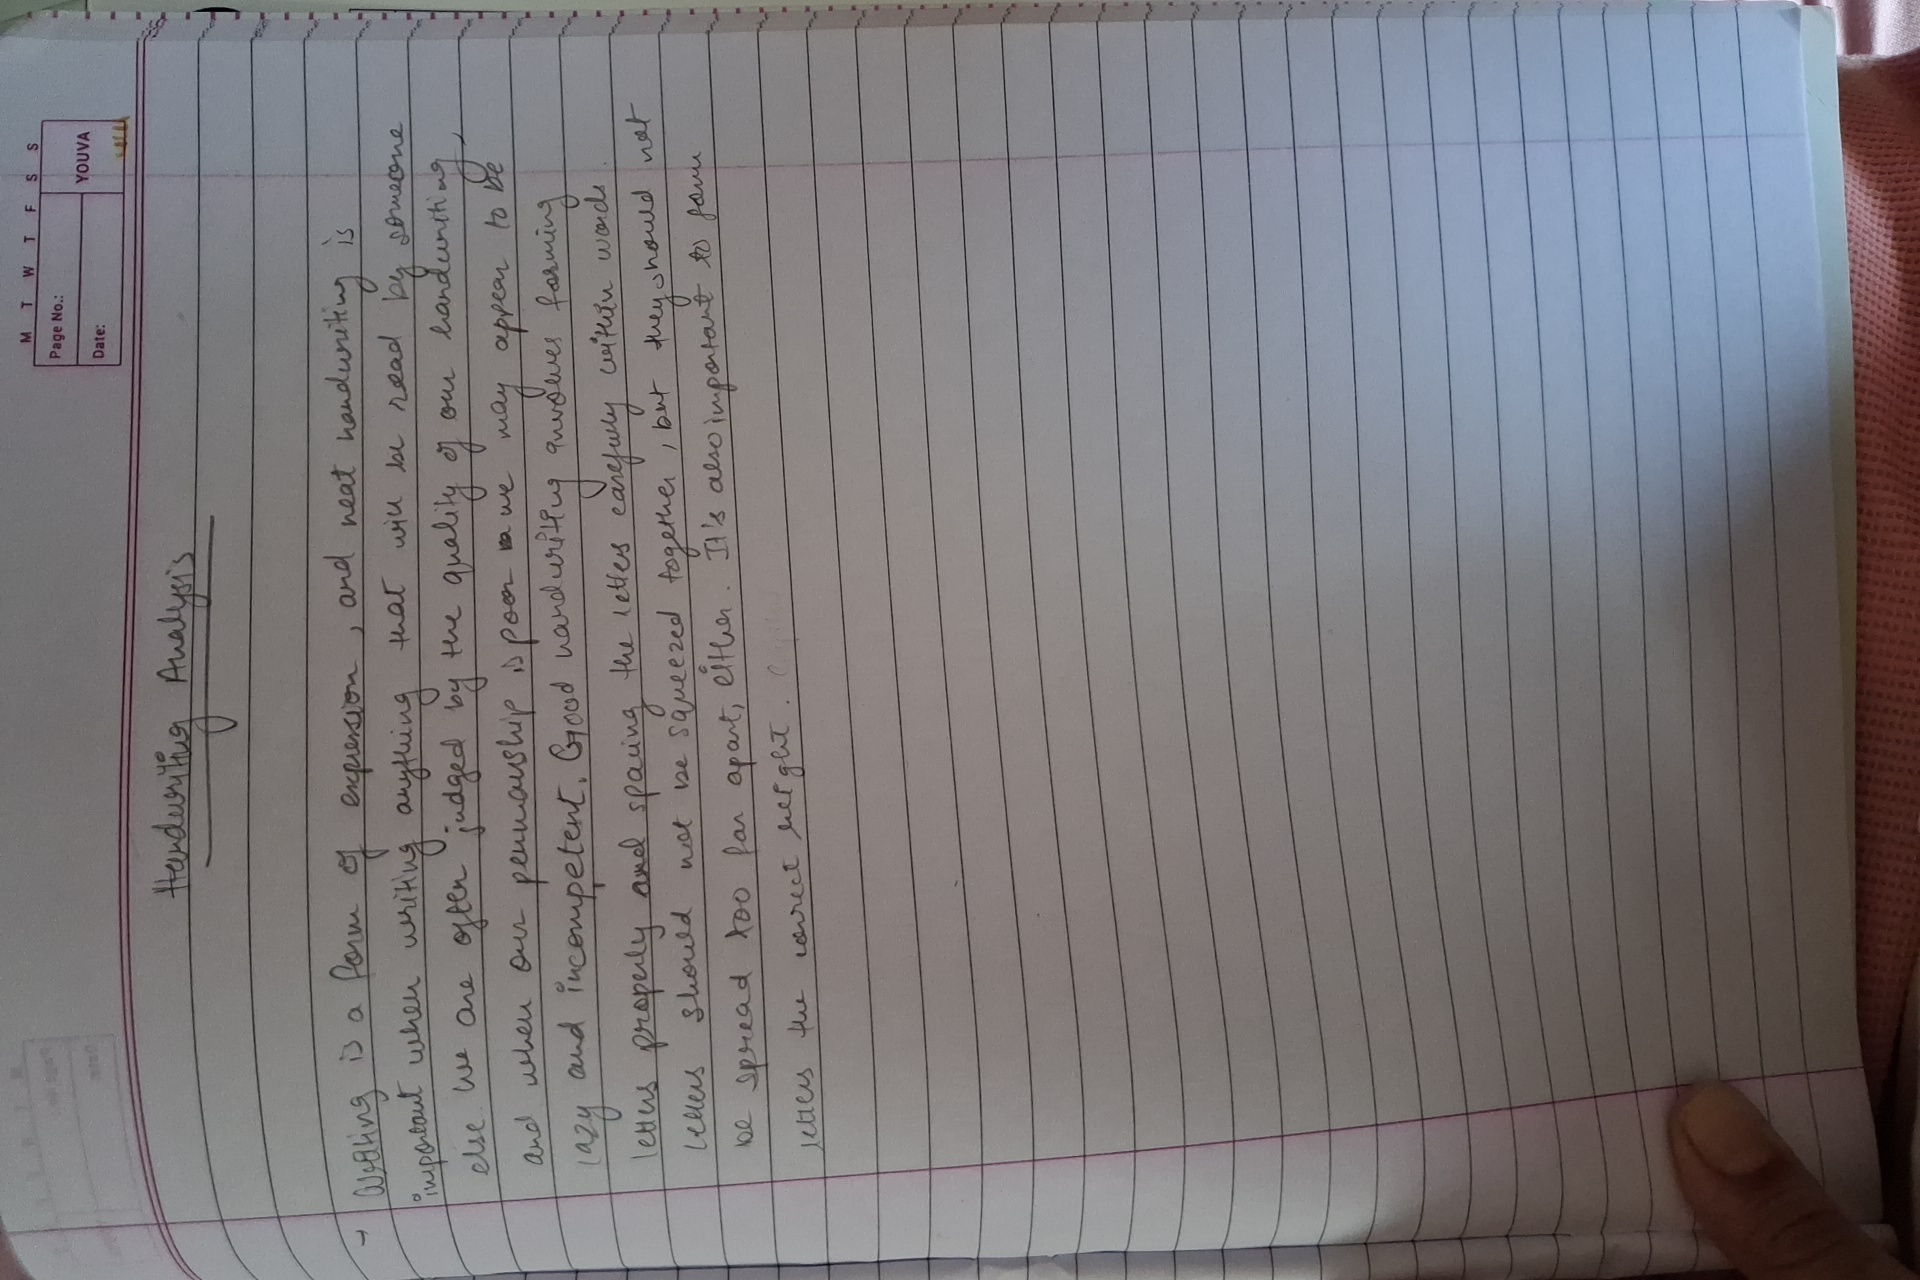 M T W T F S S
Page No.:
Date:
YOUVA
Handwriting Analysis
→ Writing is a form of expression, and neat handwriting is
important when writing anything that will be read by someone
else. We are often judged by the quality of our handwriting,
and when our penmanship is poor we may appear to be
lazy and incompetent. Good handwriting involves forming
letters properly and spacing the letters carefully within words.
Letters should not be squeezed together, but they should not
be spread too far apart, either. It's also important to form
letters the correct height.